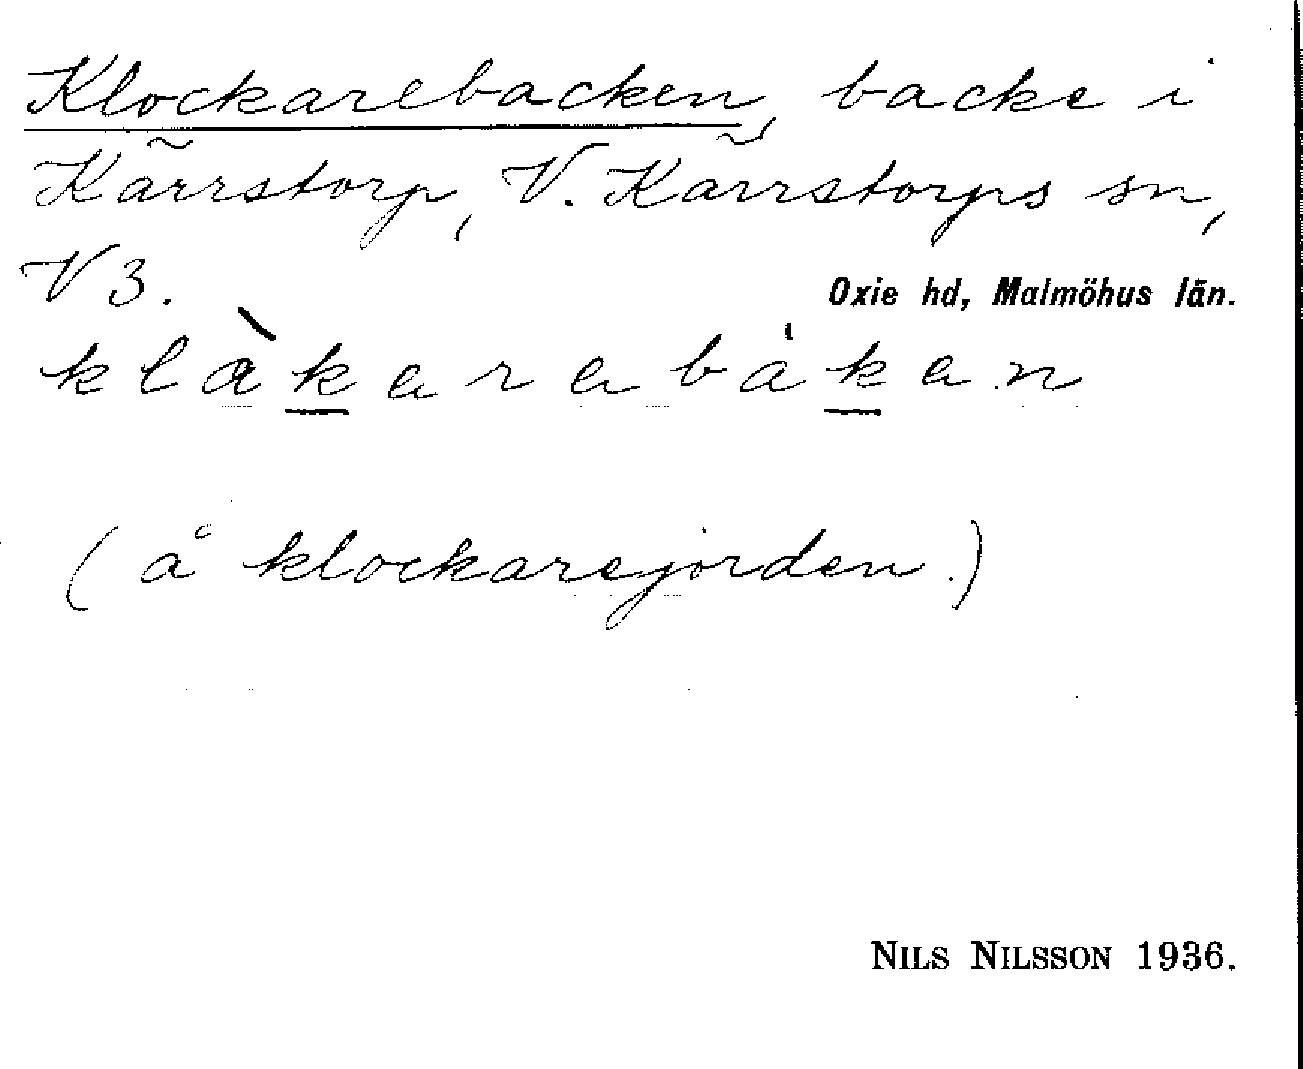 Klockarebacken, backe i
Kärrstorp, V. Kärrstorps sn,
V 3.
Oxie hd, Malmöhus län.
klàkarabákan
(å klockarejorden.)
NILS NILSSON 1936.